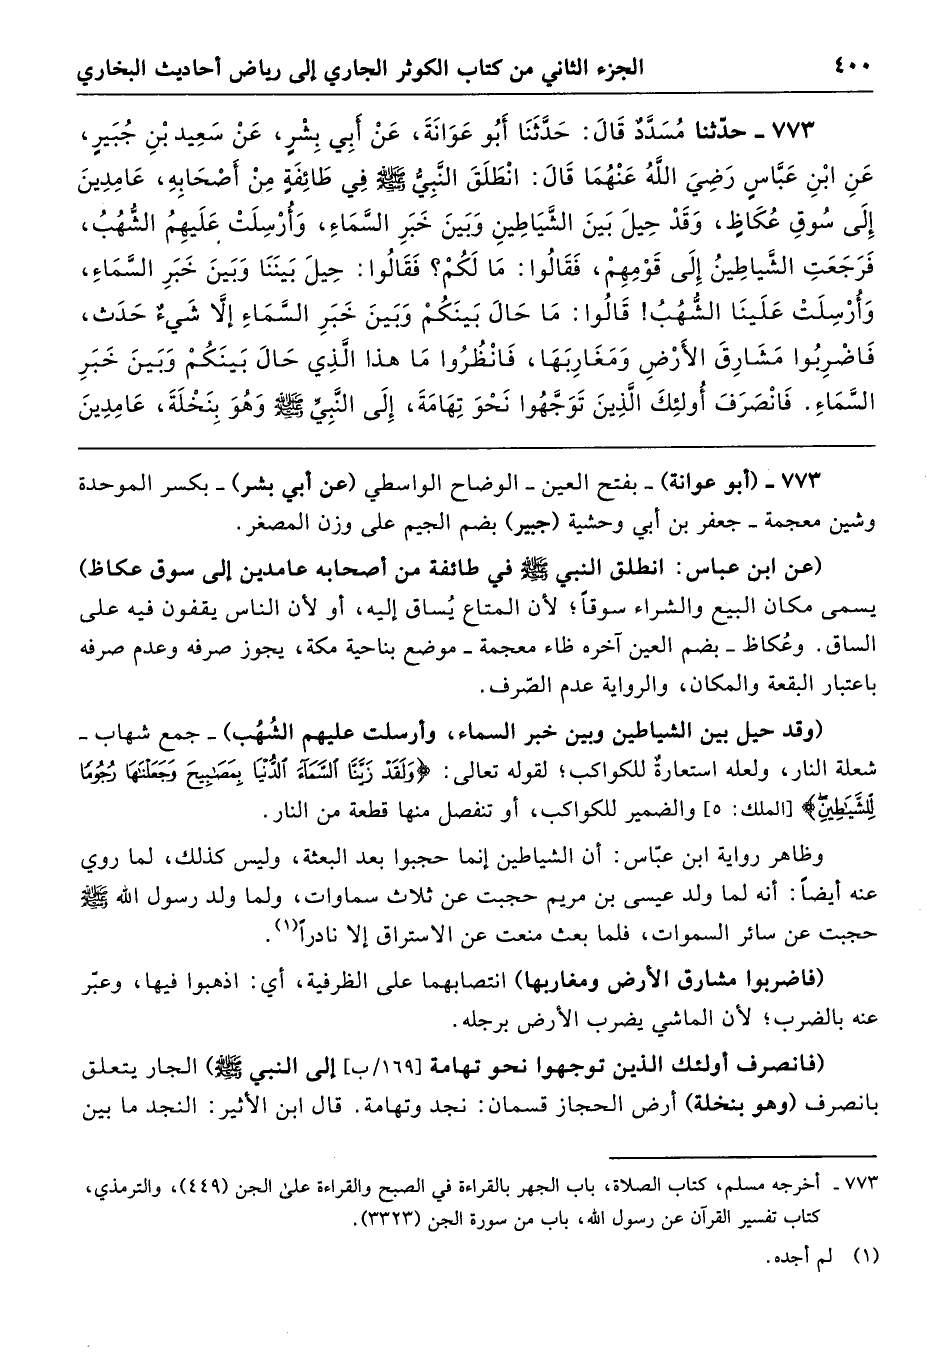 ٤٠٠ الجزء الثاني من كتاب الكوثر الجاري إلى رياض أحاديث البخاري
٧٧٣ ـ حدّثنا مُسَدَّدٌ قَالَ: حَدَّثَنَا أَبُو عَوَانَةَ، عَنْ أَبِي بِشْرٍ، عَنْ سَعِيدِ بْنِ جُبَيرٍ،
عَنِ ابْنِ عَبَّاسٍ رَضِيَ اللَّهُ عَنْهُمَا قَالَ: انْطَلَقَ النَّبِيُّ ﷺ فِي طَائِفَةٍ مِنْ أَصْحَابِهِ، عَامِدِينَ
إِلَى سُوقِ عُكَاظٍ، وَقَدْ حِيلَ بَينَ الشَّيَاطِينِ وَبَينَ خَبَرِ السَّمَاءِ، وَأُرْسِلَتْ عَلَيهِمُ الشُّهُبُ،
فَرَجَعَتِ الشَّيَاطِينُ إِلَى قَوْمِهِمْ، فَقَالُوا: مَا لَكُمْ؟ فَقَالُوا: حِيلَ بَينَنَا وَبَينَ خَبَرِ السَّمَاءِ،
وَأُرْسِلَتْ عَلَينَا الشُّهُبُ! قَالُوا: مَا حَالَ بَينَكُمْ وَبَينَ خَبَرِ السَّمَاءِ إِلَّا شَيءٌ حَدَثَ،
فَاضْرِبُوا مَشَارِقَ الأَرْضِ وَمَغَارِبَهَا، فَانْظُرُوا مَا هذا الَّذِي حَالَ بَينَكُمْ وَبَينَ خَبَرِ
السَّمَاءِ. فَانْصَرَفَ أُولئِكَ الَّذِينَ تَوَجَّهُوا نَحْوَ تِهَامَةَ، إِلَى النَّبِيِّ ﷺ وَهُوَ بِنَخْلَةَ، عَامِدِينَ
٧٧٣ ـ (أبو عوانة) ـ بفتح العين ـ الوضاح الواسطي (عن أبي بشر) ـ بكسر الموحدة
وشين معجمة ـ جعفر بن أبي وحشية (جبير) بضم الجيم على وزن المصغر.
(عن ابن عباس: انطلق النبي ﷺ في طائفة من أصحابه عامدين إلى سوق عكاظ)
يسمى مكان البيع والشراء سوقاً؛ لأن المتاع يُساق إليه، أو لأن الناس يقفون فيه على
الساق. وعُكاظ ـ بضم العين آخره ظاء معجمة ـ موضع بناحية مكة، يجوز صرفه وعدم صرفه
باعتبار البقعة والمكان، والرواية عدم الصّرف.
(وقد حيل بين الشياطين وبين خبر السماء، وأرسلت عليهم الشُهُب) ـ جمع شهاب ـ
شعلة النار، ولعله استعارةٌ للكواكب؛ لقوله تعالى: ﴿وَلَقَدْ زَيَّنَّا ٱلسَّمَآءَ ٱلدُّنْيَا بِمَصَٰبِيحَ وَجَعَلْنَٰهَا رُجُومًا
لِّلشَّيَٰطِينِۖ﴾ [الملك: ٥] والضمير للكواكب، أو تنفصل منها قطعة من النار.
وظاهر رواية ابن عبّاس: أن الشياطين إنما حجبوا بعد البعثة، وليس كذلك، لما روي
عنه أيضاً: أنه لما ولد عيسى بن مريم حجبت عن ثلاث سماوات، ولما ولد رسول الله ﷺ
حجبت عن سائر السموات، فلما بعث منعت عن الاستراق إلا نادراً(١).
(فاضربوا مشارق الأرض ومغاربها) انتصابهما على الظرفية، أي: اذهبوا فيها، وعبّر
عنه بالضرب؛ لأن الماشي يضرب الأرض برجله.
(فانصرف أولئك الذين توجهوا نحو تهامة [١٦٩/ب] إلى النبي ﷺ) الجار يتعلق
بانصرف (وهو بنخلة) أرض الحجاز قسمان: نجد وتهامة. قال ابن الأثير: النجد ما بين
٧٧٣ ـ أخرجه مسلم، كتاب الصلاة، باب الجهر بالقراءة في الصبح والقراءة على الجن (٤٤٩)، والترمذي،
كتاب تفسير القرآن عن رسول الله، باب من سورة الجن (٣٣٢٣).
(١) لم أجده.